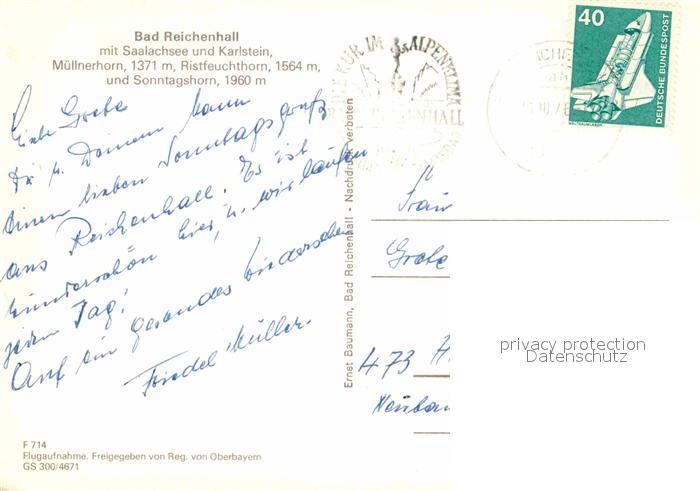 Bad Reichenhall
mit Saalachsee und Karlstein,
Müllnerhorn, 1371 m, Ristfeuchthorn, 1564 m,
und Sonntagshorn, 1960 m
Liebe Grete
Dir u. Deinem Mann
einen lieben Sonntagsgruß
aus Reichenhall. Es ist
wunderschön hier, u. wir laufen
jeden Tag!
Auf ein gesundes Wiedersehen
Friedel Müller.
F 714
Flugaufnahme. Freigegeben von Reg. von Oberbayern
GS 300/4671
Ernst Baumann, Bad Reichenhall - Nachdruck verboten
KUR IM ALPENKLIMA
40
DEUTSCHE BUNDESPOST
WELTRAUMLABOR
Frau
Grete
473
privacy protection
Datenschutz